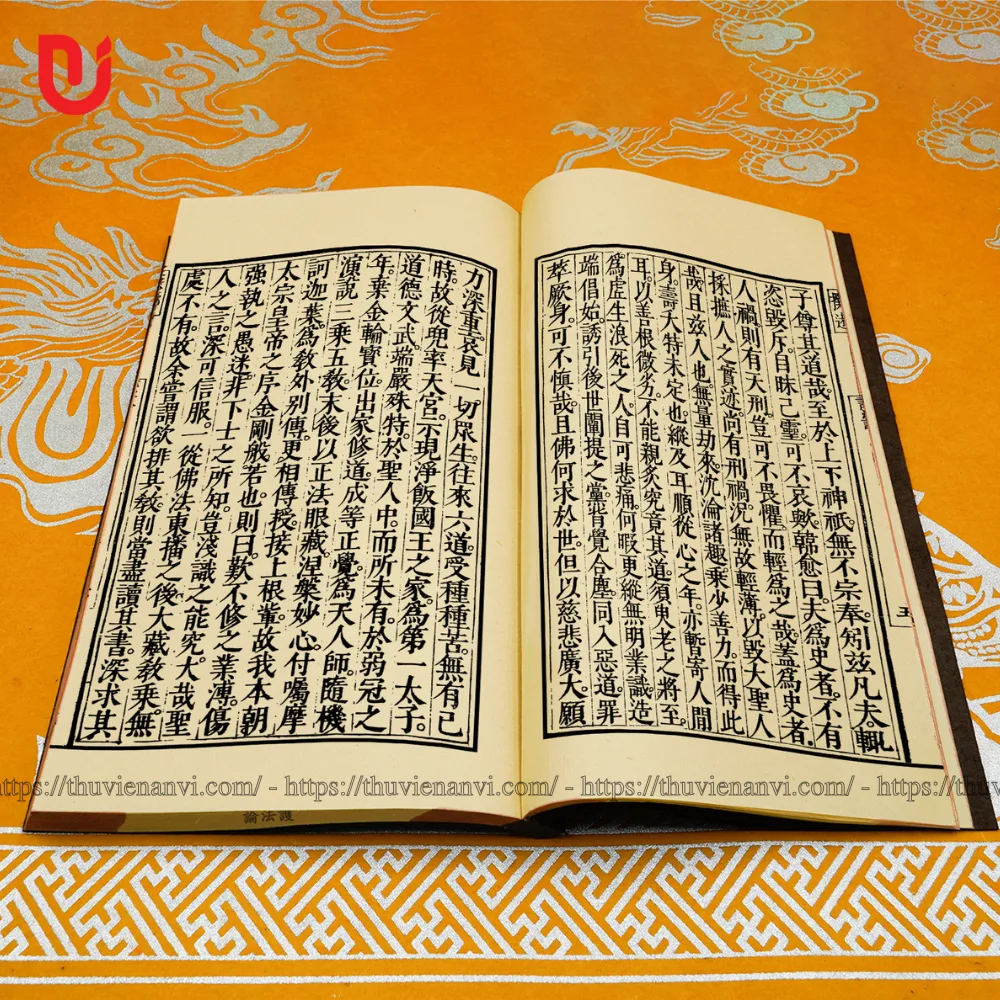 子尊其道哉。至於上下神祇。無不宗奉。矧玆凡夫。輒
恣毀斥。自昧己靈。可不哀歟。韓愈曰。夫爲史者。不有
人禍。則有天刑。豈可不畏懼而輕爲之哉。蓋爲史者。
採摭人之實迹。尚有刑禍。況無故輕薄。以毀大聖人
哉。且玆人也。無量劫來。沈淪諸趣。乘少善力。而得此
身。壽夭特未定也。縱及耳順從心之年。亦暫寄人間
耳。以善根微劣。不能親炙究竟其道。須臾老之將至。
爲虛生浪死之人。自可悲痛。何暇更縱無明業識。造
端倡始。誘引後世闡提之黨。背覺合塵。同入惡道。罪
萃厥身。可不慎哉。且佛何求於世。但以慈悲廣大。願
五
力深重。哀見一切眾生。往來六道。受種種苦。無有已
時。故從兜率天宮。示現淨飯國王之家。爲第一太子。
道德文武。端嚴殊特。於聖人中。而所未有。於弱冠之
年。棄金輪寶位。出家修道。成等正覺。爲天人師。隨機
演說三乘五教。末後以正法眼藏。涅槃妙心。付囑摩
訶迦葉。爲教外別傳。更相傳授。接上根輩。故我本朝
太宗皇帝之序金剛般若也。則曰。歎不修之業溥。傷
強執之愚迷。非下士之所知。豈淺識之能究。大哉聖
人之言。深可信服。一從佛法東播之後。大藏教乘。無
處不有。故余嘗謂。欲排其教。則當盡讀其書。深求其
https://thuvienanvi.com/ - https://thuvienanvi.com/ - https://thuvienanvi.com/ - https://thuvienanvi.com/
護法論